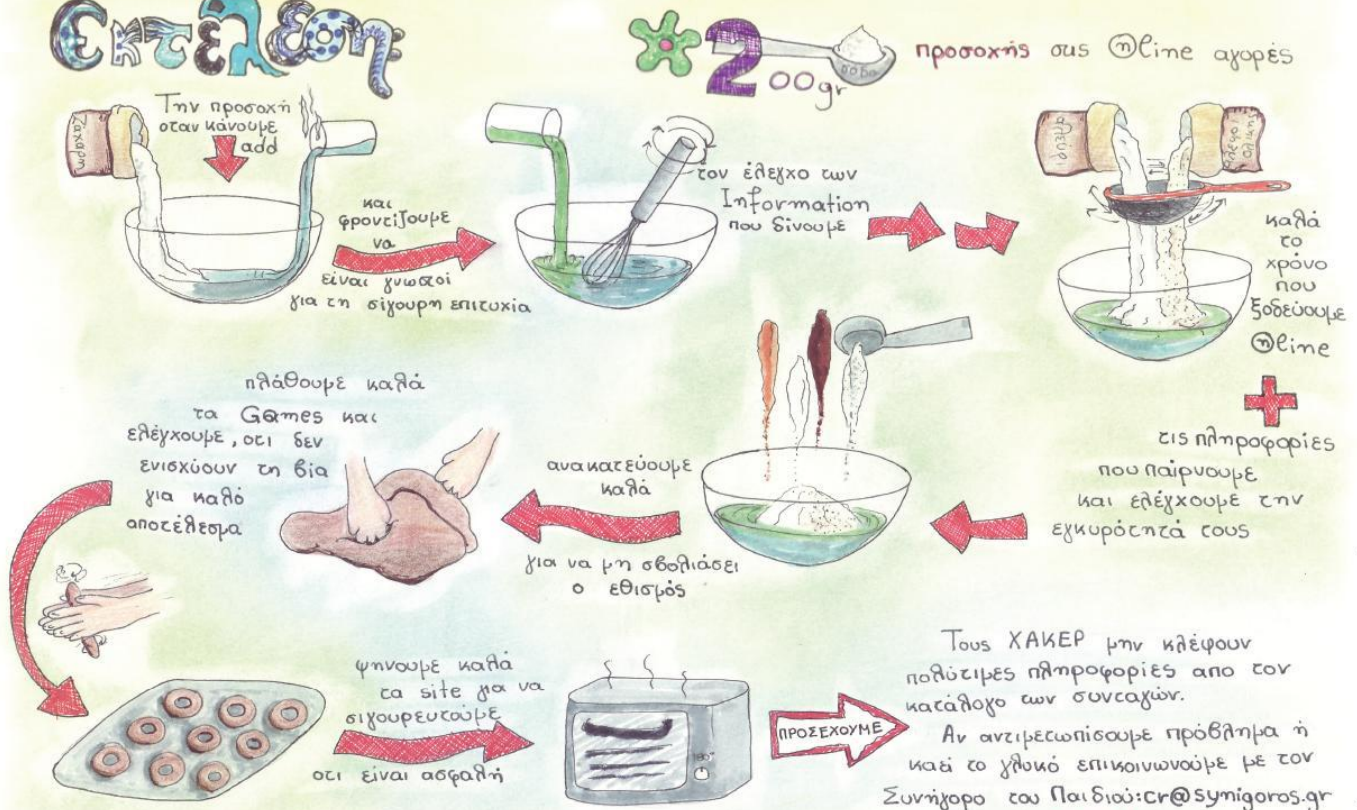 Εκτέλεση
*200gr σόδα προσοχής στις @nline αγορές
Ζάχαρη
Την προσοχή
οταν κάνουμε
add
και
φροντίζουμε
να
είναι γνωστοί
για τη σίγουρη επιτυχία
τον έλεγχο των
Information
που δίνουμε
αλεύρι
αλεύρι
ολικής
καλά
το
χρόνο
που
ξοδεύουμε
@nline
+
τις πληροφορίες
που παίρνουμε
και ελέγχουμε την
εγκυρότητά τους
ανακατεύουμε
καλά
για να μη σβολιάσει
ο εθισμός
πλάθουμε καλά
τα G@mes και
ελέγχουμε, οτι δεν
ενισχύουν τη βία
για καλό
αποτέλεσμα
ψηνουμε καλά
τα site για να
σιγουρευτούμε
οτι είναι ασφαλή
180°
ΠΡΟΣΕΧΟΥΜΕ
Τους ΧΑΚΕΡ μην κλέψουν
πολύτιμες πληροφορίες απο τον
κατάλογο των συνταγών.
Αν αντιμετωπίσουμε πρόβλημα ή
καεί το γλυκό επικοινωνούμε με τον
Συνήγορο του Παιδιού:cr@synigoros.gr